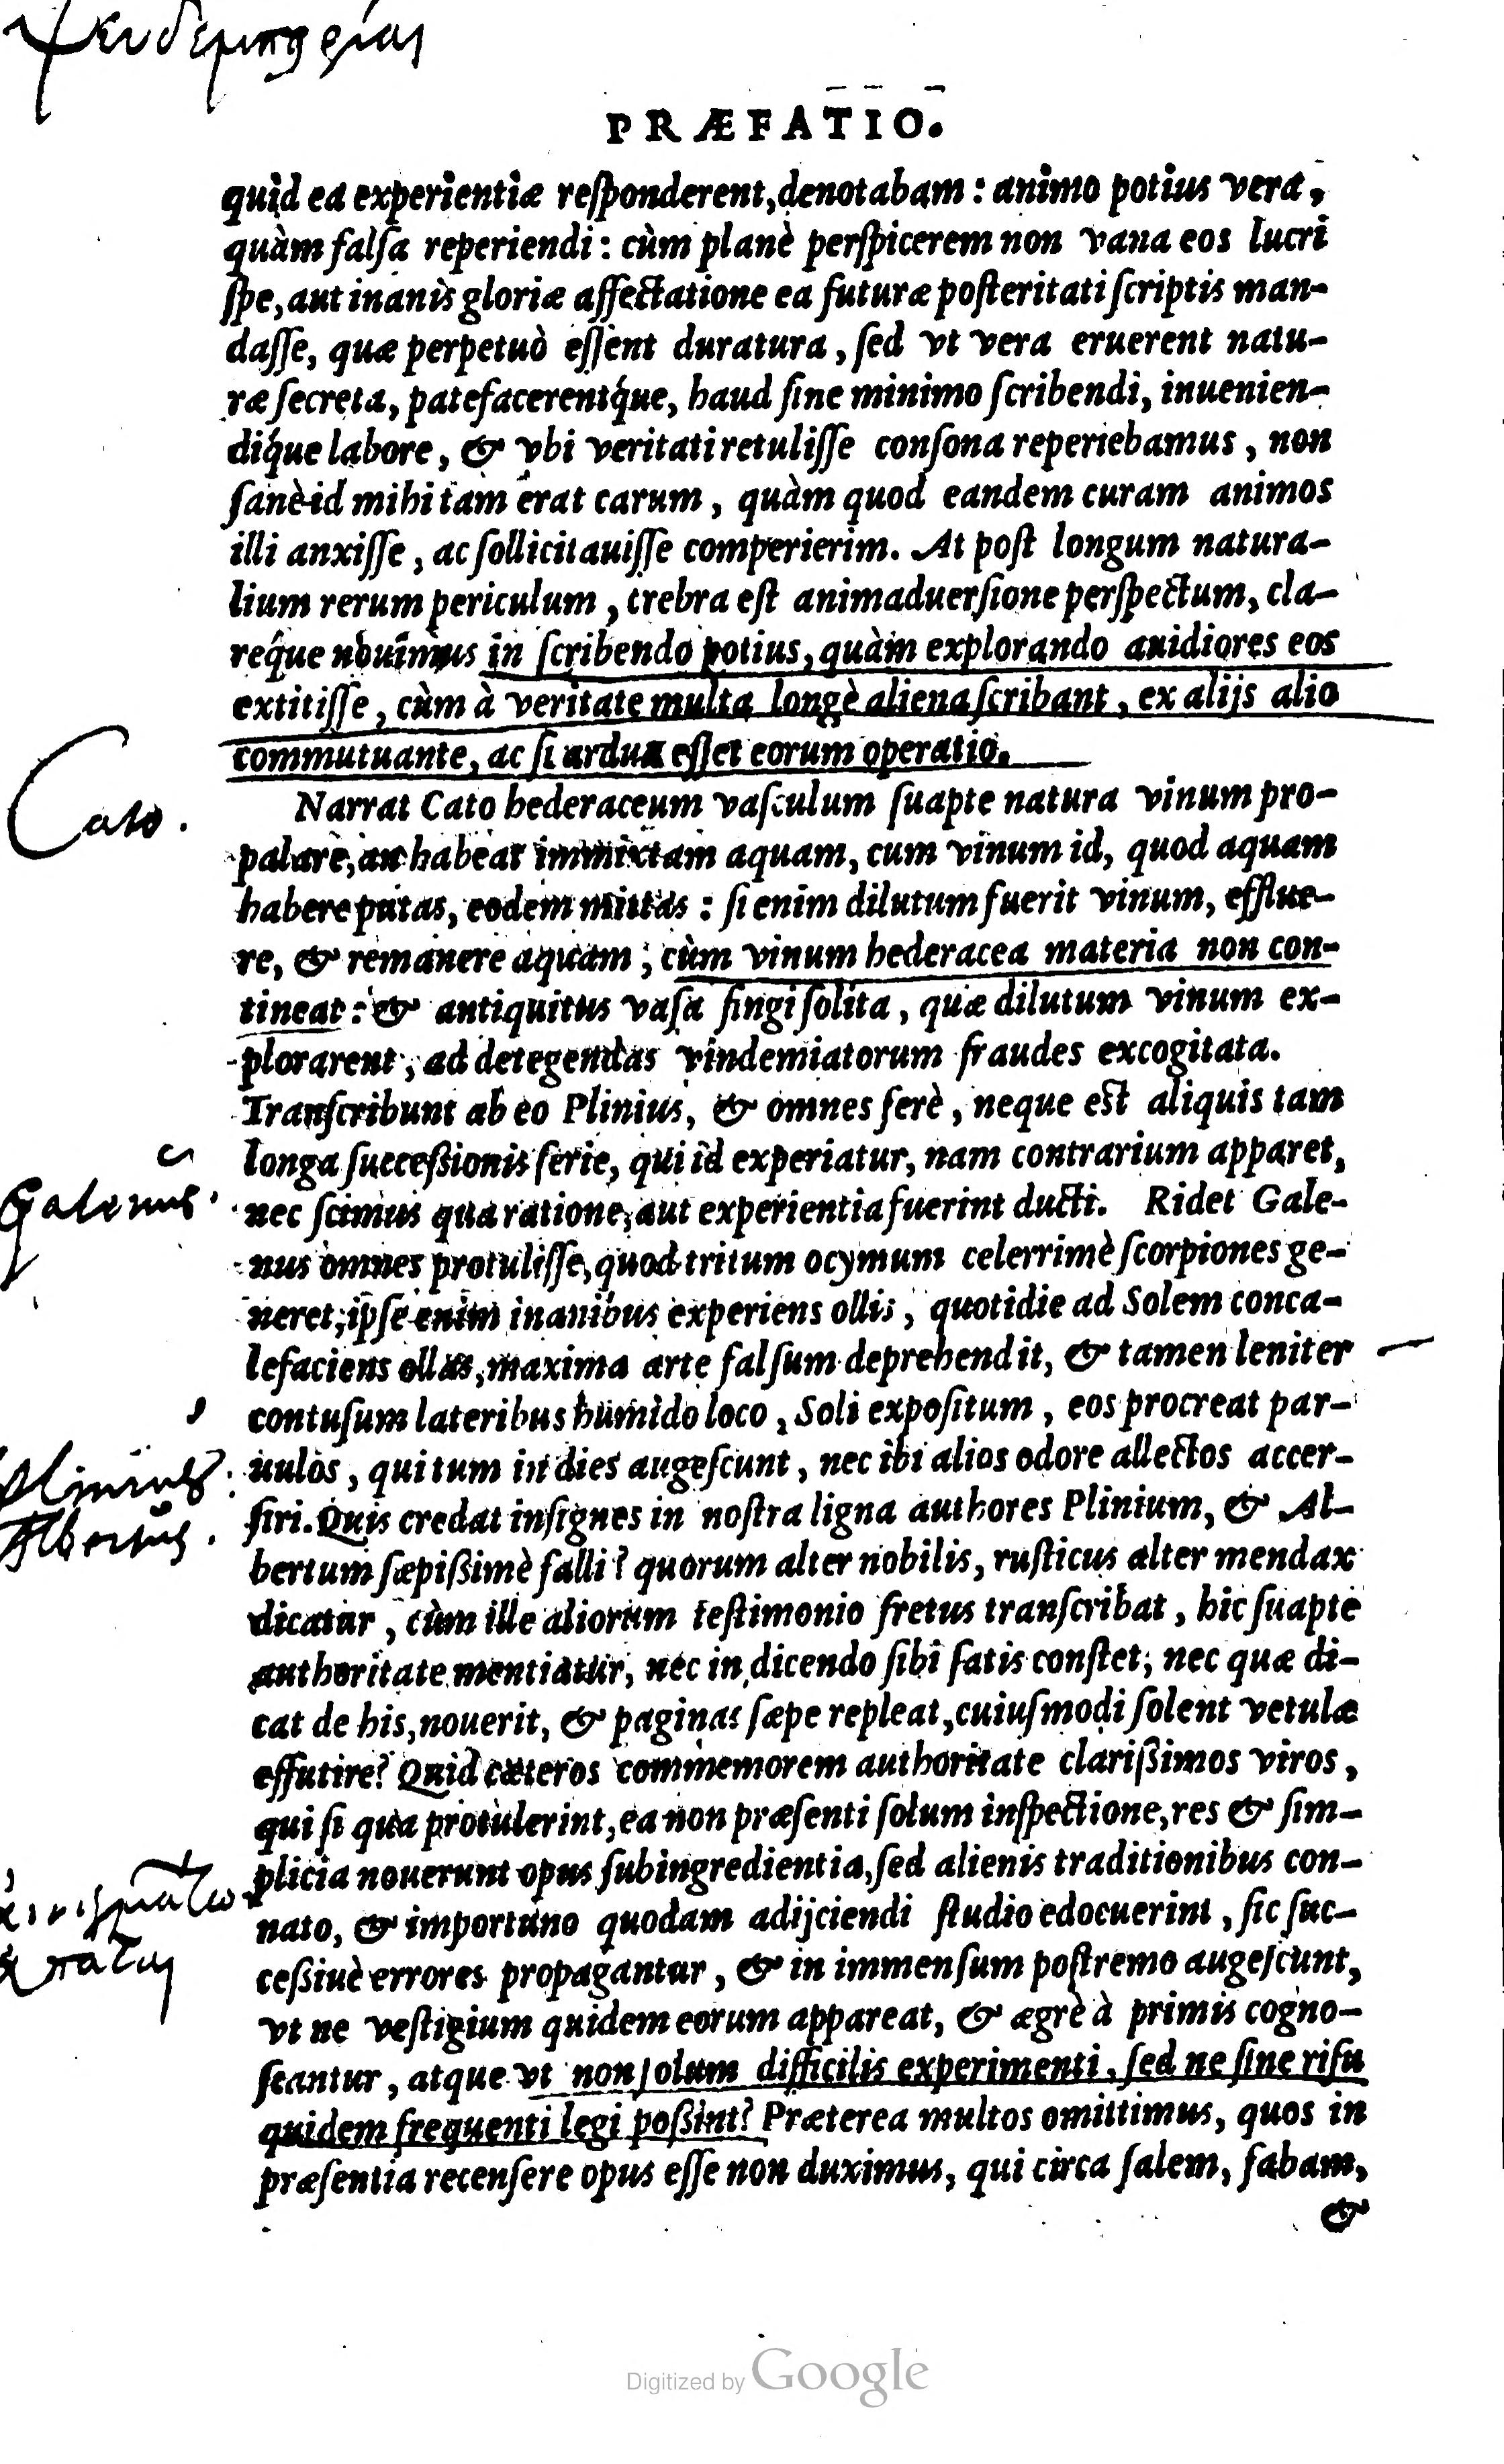 PRÆFATIO.
quid ea experientiæ reſponderent, denotabam : animo potius vera,
quàm falſa reperiendi : cùm planè perſpicerem non vana eos lucri
ſpe, aut inanis gloriæ affectatione ea futuræ poſteritati ſcriptis man-
daſſe, quæ perpetuò eſſent duratura, ſed vt vera eruerent natu-
ræ ſecreta, patefacerentq́ue, haud ſine minimo ſcribendi, inuenien-
diq́ue labore, & vbi veritati retuliſſe conſona reperiebamus, non
ſanè id mihi tam erat carum, quàm quod eandem curam animos
illi anxiſſe, ac ſollicitauiſſe comperierim. At poſt longum natura-
lium rerum periculum, crebra eſt animaduerſione perſpectum, cla-
req́ue nouimus in ſcribendo potius, quàm explorando auidiores eos
extitiſſe, cùm à veritate multa longè aliena ſcribant, ex alijs alio
commutuante, ac ſi ardua eſſet eorum operatio.
Cato.
Narrat Cato hederaceum vaſculum ſuapte natura vinum pro-
palare, an habeat immixtam aquam, cum vinum id, quod aquam
habere putas, eodem mittas : ſi enim dilutum fuerit vinum, efflue-
re, & remanere aquam ; cùm vinum hederacea materia non con-
tineat : & antiquitus vaſa fingi ſolita, quæ dilutum vinum ex-
plorarent, ad detegendas vindemiatorum fraudes excogitata.
Tranſcribunt ab eo Plinius, & omnes ferè, neque eſt aliquis tam
longa ſucceßionis ſerie, qui id experiatur, nam contrarium apparet,
Galenus.
nec ſcimus qua ratione, aut experientia fuerint ducti. Ridet Gale-
nus omnes protuliſſe, quod tritum ocymum celerrimè ſcorpiones ge-
neret, ipſe enim inanibus experiens ollis, quotidie ad Solem conca-
lefaciens ollas, maxima arte falſum deprehendit, & tamen leniter
contuſum lateribus humido loco, Soli expoſitum, eos procreat par-
Plinius.
uulos, qui tum in dies augeſcunt, nec ibi alios odore allectos accer-
Albertus.
ſiri. Quis credat inſignes in noſtra ligna authores Plinium, & Al-
bertum ſæpißimè falli? quorum alter nobilis, ruſticus alter mendax
dicatur, cùm ille aliorum teſtimonio fretus tranſcribat, hic ſuapte
authoritate mentiatur, nec in dicendo ſibi ſatis conſtet, nec quæ di-
cat de his, nouerit, & paginas ſæpe repleat, cuiuſmodi ſolent vetulæ
effutire? Quid cæteros commemorem authoritate clarißimos viros,
qui ſi qua protulerint, ea non præſenti ſolum inſpectione, res & ſim-
plicia nouerunt opus ſubingredientia, ſed alienis traditionibus con-
nato, & importuno quodam adijciendi ſtudio edocuerint, ſic ſuc-
ceßiuè errores propagantur, & in immenſum poſtremo augeſcunt,
vt ne veſtigium quidem eorum appareat, & ægrè à primis cogno-
ſcantur, atque vt non ſolum difficilis experimenti, ſed ne ſine riſu
quidem frequenti legi poßint? Præterea multos omittimus, quos in
præſentia recenſere opus eſſe non duximus, qui circa ſalem, fabam,
&
Digitized by Google